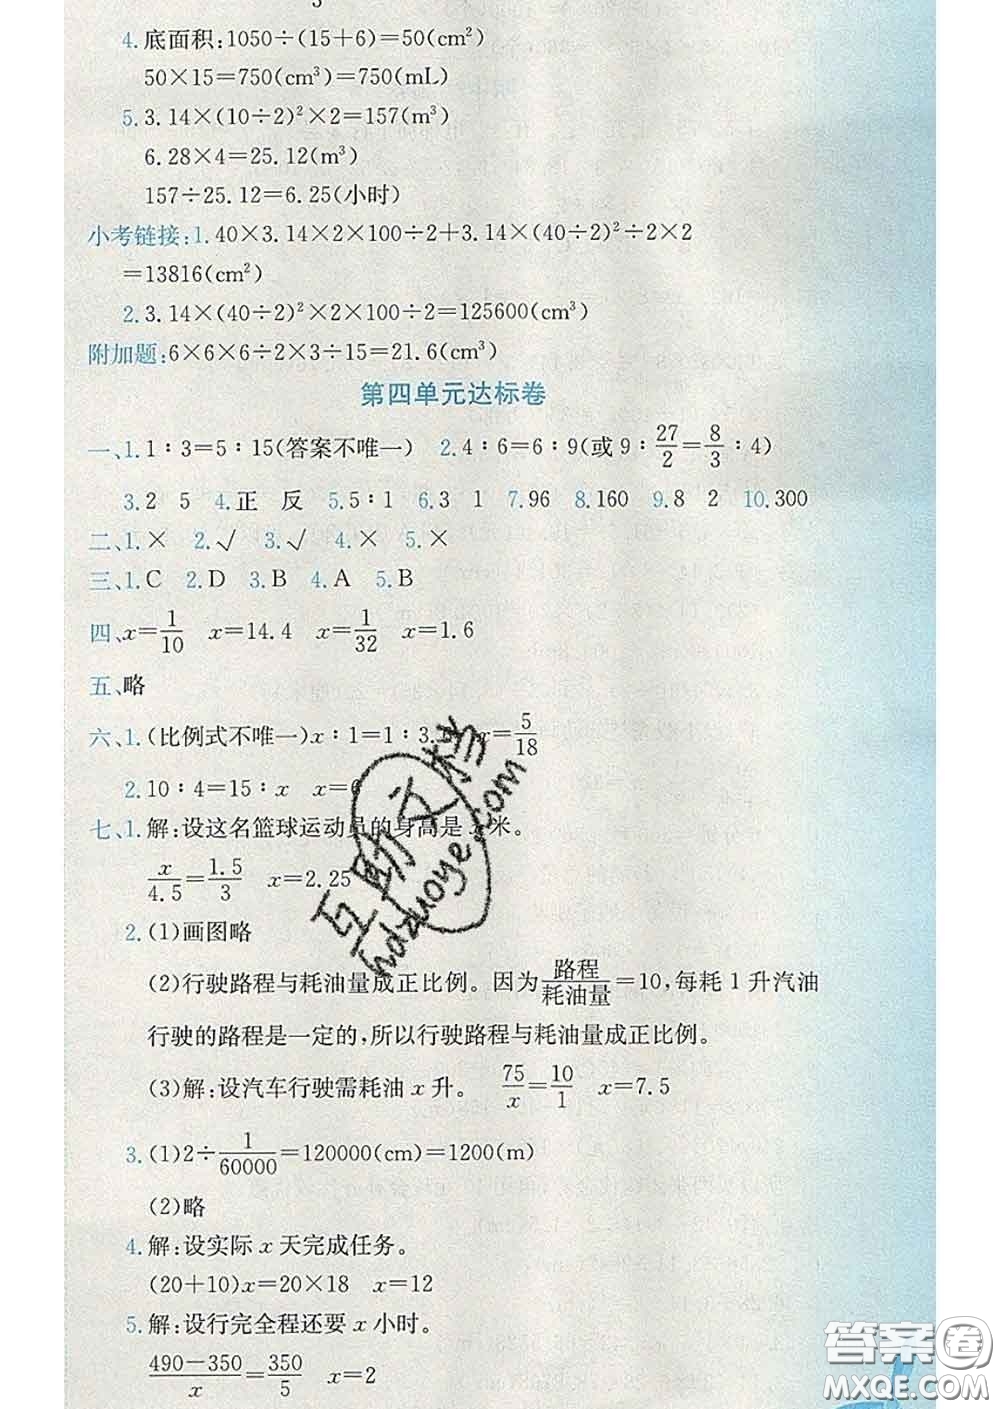 4.底面积:1050÷(15+6)=50(cm²)
50×15=750(cm³)=750(mL)
5.3.14×(10÷2)²×2=157(m³)
6.28×4=25.12(m³)
157÷25.12=6.25(小时)
小考链接:1.40×3.14×2×100÷2+3.14×(40÷2)²÷2×2
=13816(cm²)
2.3.14×(40÷2)²×2×100÷2=125600(cm³)
附加题:6×6×6÷2×3÷15=21.6(cm³)
第四单元达标卷
一、1.1∶3=5∶15(答案不唯一) 2.4∶6=6∶9(或9∶27/2=8/3∶4)
3.2 5 4.正 反 5.5∶1 6.3 1 7.96 8.160 9.8 2 10.300
二、1.× 2.√ 3.√ 4.× 5.×
三、1.C 2.D 3.B 4.A 5.B
四、x=1/10 x=14.4 x=1/32 x=1.6
五、略
六、1.(比例式不唯一)x∶1=1∶3. x=5/18
2.10∶4=15∶x x=6
七、1.解:设这名篮球运动员的身高是x米。
x/4.5=1.5/3 x=2.25
2.(1)画图略
(2)行驶路程与耗油量成正比例。因为路程/耗油量=10,每耗1升汽油
行驶的路程是一定的,所以行驶路程与耗油量成正比例。
(3)解:设汽车行驶需耗油x升。 75/x=10/1 x=7.5
3.(1)2÷1/60000=120000(cm)=1200(m)
(2)略
4.解:设实际x天完成任务。
(20+10)x=20×18 x=12
5.解:设行完全程还要x小时。
490-350/x=350/5 x=2
互助文档
hdzuoye.com
答案圈
MXQE.COM